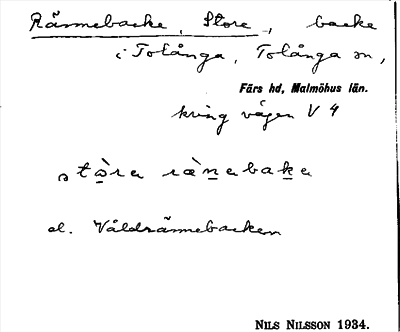 Rännebacke, Store -, backe
i Tolånga, Tolånga sn,
Färs hd, Malmöhus län.
kring vägen V 4
stòra rànabaka
el. Våldrännebacken
NILS NILSSON 1934.